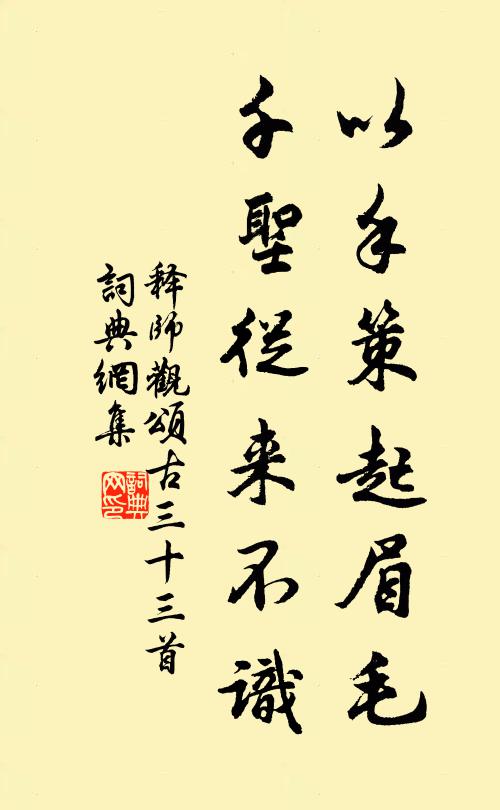 以手策起眉毛
千聖從来不識
释師觀頌古三十三首
詞典網集
詞典
网印